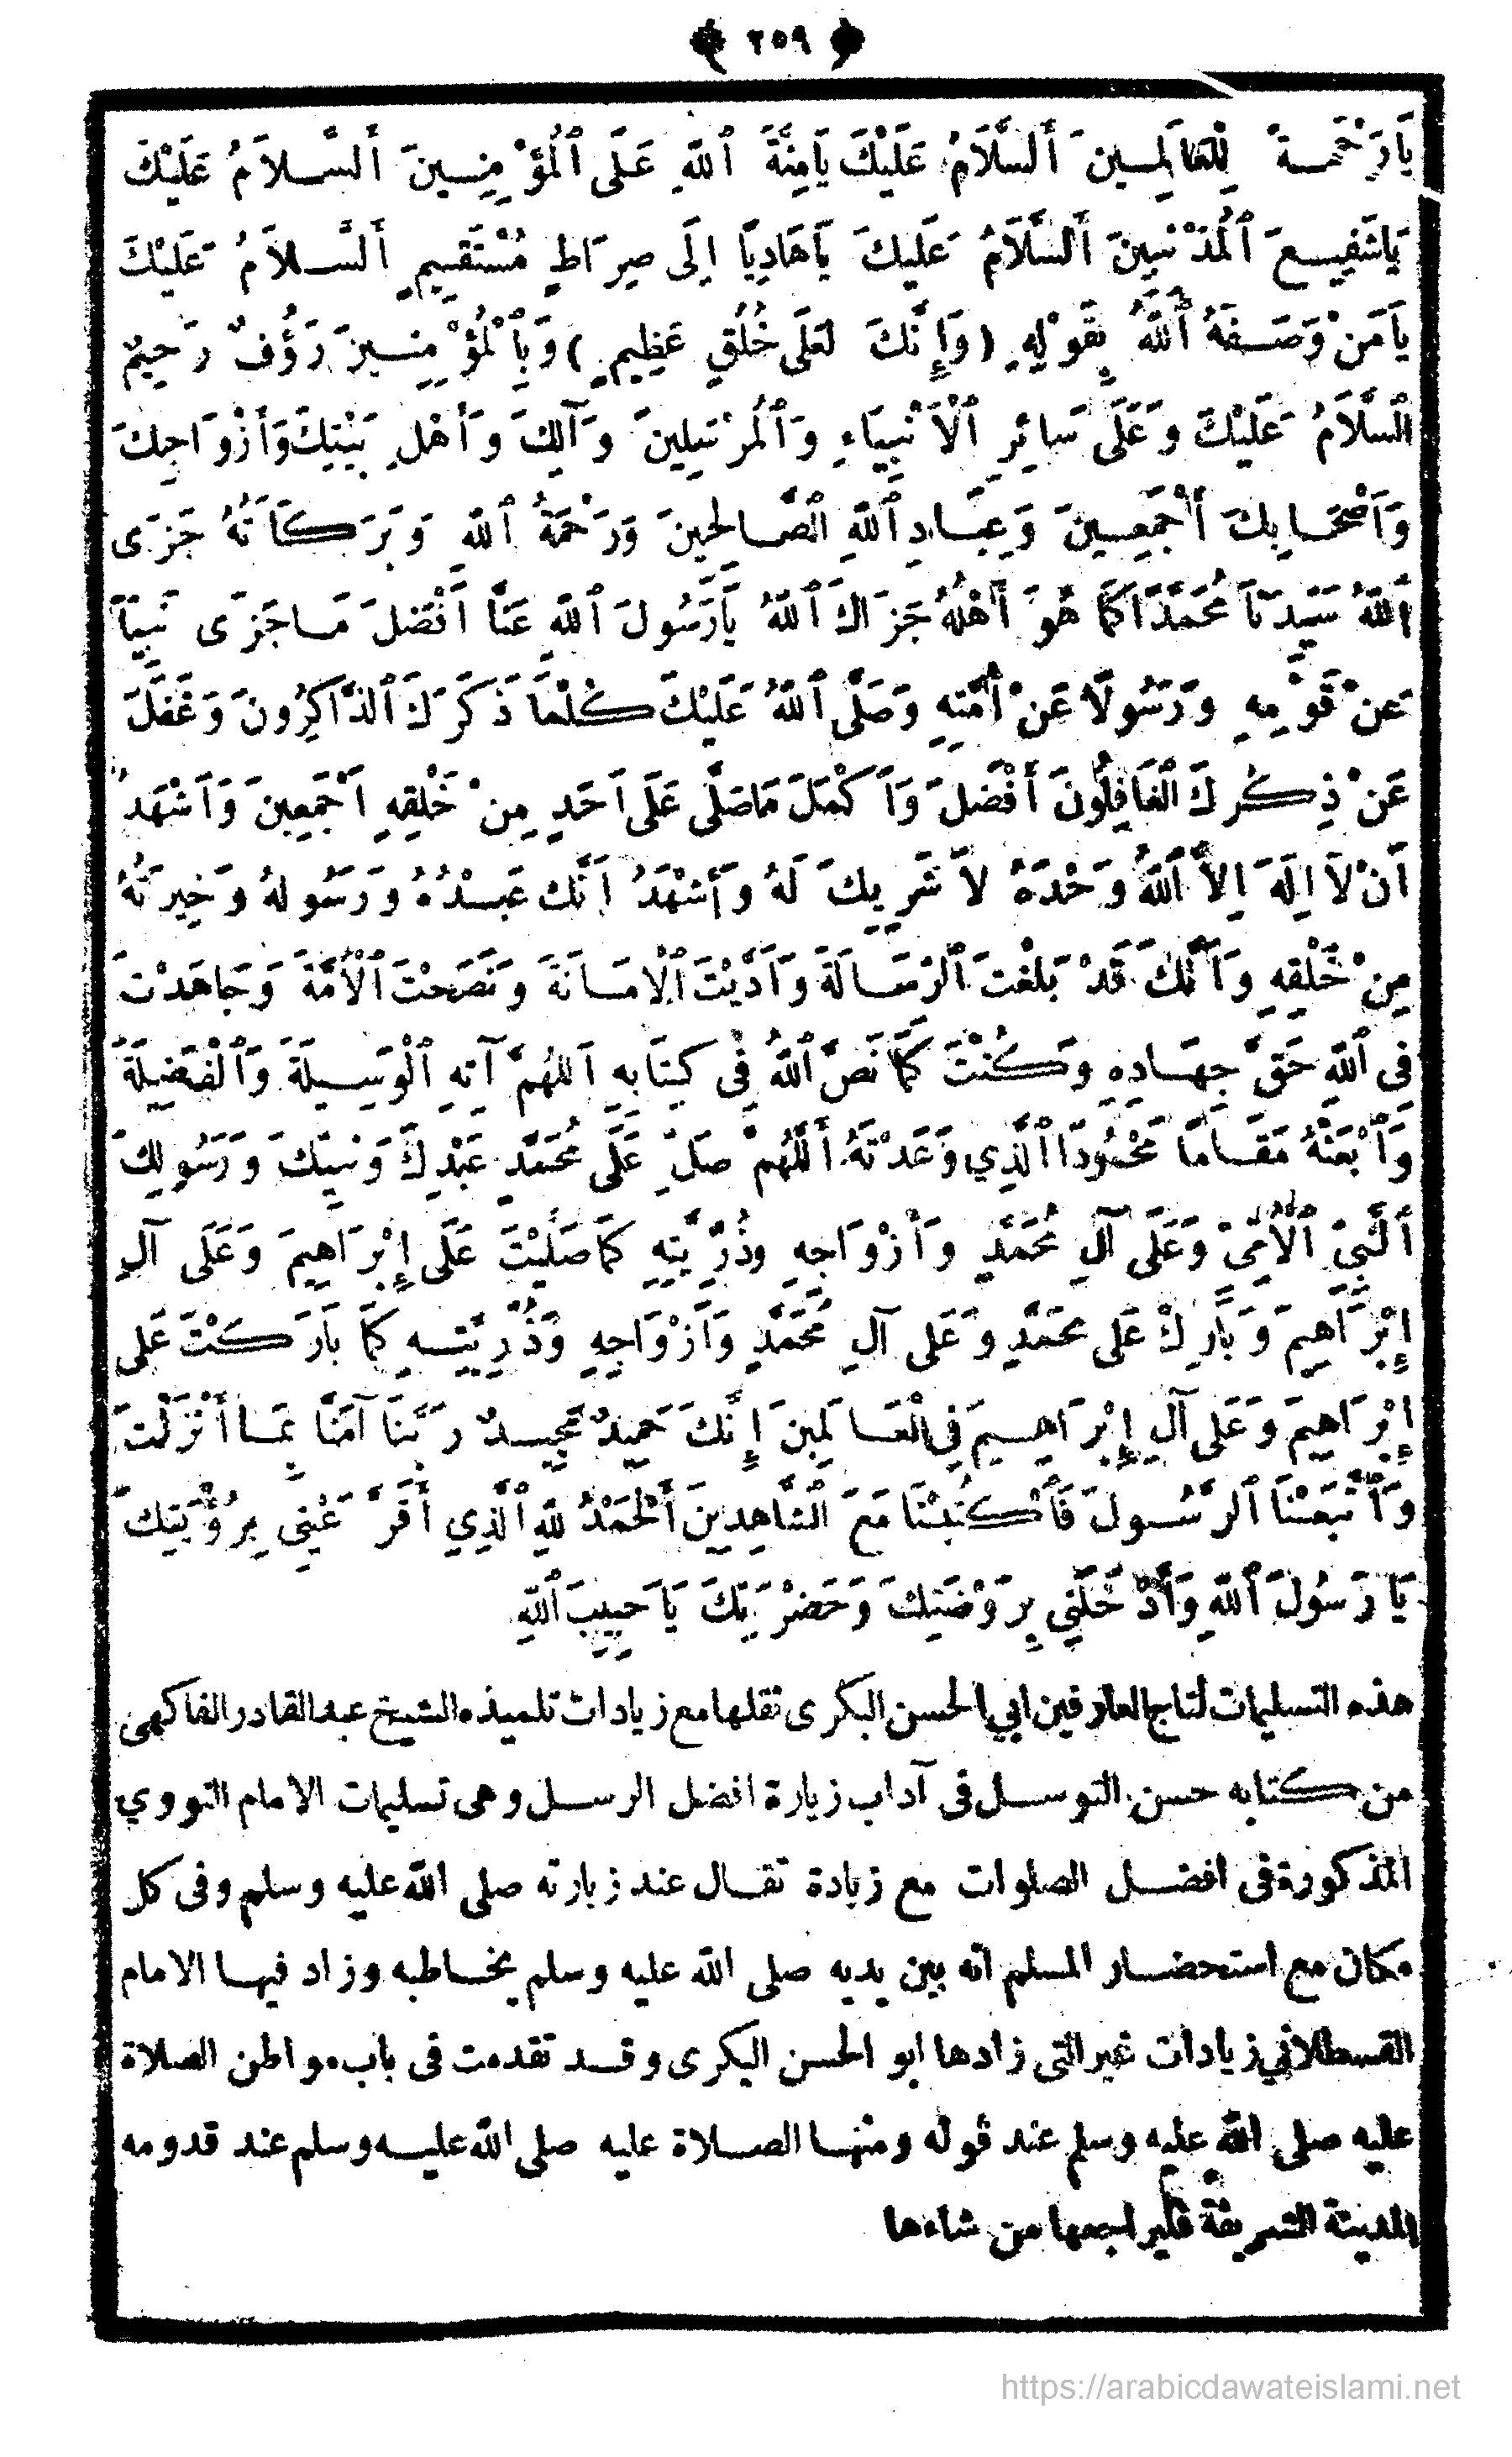 ﴿ ٢٥٩ ﴾
يَا رَحْمَةً لِلْعَالَمِينَ أَلسَّلَامُ عَلَيْكَ يَا مِنَّةَ ٱللهِ عَلَى ٱلْمُؤْمِنِينَ أَلسَّلَامُ عَلَيْكَ
يَا شَفِيعَ ٱلْمُذْنِبِينَ أَلسَّلَامُ عَلَيْكَ يَا هَادِيًا إِلَى صِرَاطٍ مُسْتَقِيمٍ أَلسَّلَامُ عَلَيْكَ
يَا مَنْ وَصَفَهُ ٱللهُ بِقَوْلِهِ (وَإِنَّكَ لَعَلَى خُلُقٍ عَظِيمٍ) وَبِٱلْمُؤْمِنِينَ رَؤُفٌ رَحِيمٌ
ٱلسَّلَامُ عَلَيْكَ وَعَلَى سَائِرِ ٱلْأَنْبِيَاءِ وَٱلْمُرْسَلِينَ وَآلِكَ وَأَهْلِ بَيْتِكَ وَأَزْوَاجِكَ
وَأَصْحَابِكَ أَجْمَعِينَ وَعِبَادِ ٱللهِ ٱلصَّالِحِينَ وَرَحْمَةُ ٱللهِ وَبَرَكَاتُهُ جَزَى
ٱللهُ سَيِّدَنَا مُحَمَّدًا كَمَا هُوَ أَهْلُهُ جَزَاكَ ٱللهُ يَا رَسُولَ ٱللهِ عَنَّا أَفْضَلَ مَا جَزَى نَبِيًّا
عَنْ قَوْمِهِ وَرَسُولًا عَنْ أُمَّتِهِ وَصَلَّى ٱللهُ عَلَيْكَ كُلَّمَا ذَكَرَكَ ٱلذَّاكِرُونَ وَغَفَلَ
عَنْ ذِكْرِكَ ٱلْغَافِلُونَ أَفْضَلَ وَأَكْمَلَ مَا صَلَّى عَلَى أَحَدٍ مِنْ خَلْقِهِ أَجْمَعِينَ وَأَشْهَدُ
أَنْ لَا إِلَهَ إِلَّا ٱللهُ وَحْدَهُ لَا شَرِيكَ لَهُ وَأَشْهَدُ أَنَّكَ عَبْدُهُ وَرَسُولُهُ وَخِيرَتُهُ
مِنْ خَلْقِهِ وَأَنَّكَ قَدْ بَلَّغْتَ ٱلرِّسَالَةَ وَأَدَّيْتَ ٱلْأَمَانَةَ وَنَصَحْتَ ٱلْأُمَّةَ وَجَاهَدْتَ
فِي ٱللهِ حَقَّ جِهَادِهِ وَكُنْتَ كَمَا نَصَّ ٱللهُ فِي كِتَابِهِ اَللّٰهُمَّ آتِهِ ٱلْوَسِيلَةَ وَٱلْفَضِيلَةَ
وَٱبْعَثْهُ مَقَامًا مَحْمُودًا ٱلَّذِي وَعَدْتَهُ أَللّٰهُمَّ صَلِّ عَلَى مُحَمَّدٍ عَبْدِكَ وَنَبِيِّكَ وَرَسُولِكَ
أَلنَّبِيِّ ٱلْأُمِّيِّ وَعَلَى آلِ مُحَمَّدٍ وَأَزْوَاجِهِ وَذُرِّيَّتِهِ كَمَا صَلَّيْتَ عَلَى إِبْرَاهِيمَ وَعَلَى آلِ
إِبْرَاهِيمَ وَبَارِكْ عَلَى مُحَمَّدٍ وَعَلَى آلِ مُحَمَّدٍ وَأَزْوَاجِهِ وَذُرِّيَّتِهِ كَمَا بَارَكْتَ عَلَى
إِبْرَاهِيمَ وَعَلَى آلِ إِبْرَاهِيمَ فِي ٱلْعَالَمِينَ إِنَّكَ حَمِيدٌ مَجِيدٌ رَبَّنَا آمَنَّا بِمَا أَنْزَلْتَ
وَٱتَّبَعْنَا ٱلرَّسُولَ فَٱكْتُبْنَا مَعَ ٱلشَّاهِدِينَ أَلْحَمْدُ لِلهِ ٱلَّذِي أَقَرَّ عَيْنِي بِرُؤْيَتِكَ
يَا رَسُولَ ٱللهِ وَأَدْخَلَنِي بِرَوْضَتِكَ وَحَضْرَتِكَ يَا حَبِيبَ ٱللهِ
هذه التسليمات لتاج العارفين ابي الحسن البكرى نقلها مع زيادات تلميذه الشيخ عبد القادر الفاكهى
من كتابه حسن التوسل فى آداب زيارة افضل الرسل وهى تسليمات الامام النووي
المذكورة فى افضل الصلوات مع زيادة تقال عند زيارته صلى الله عليه وسلم وفى كل
مكان مع استحضار المسلم انه بين يديه صلى الله عليه وسلم يخاطبه وزاد فيها الامام
القسطلاني زيادات غير التى زادها ابو الحسن البكرى وقد تقدمت فى باب مواطن الصلاة
عليه صلى الله عليه وسلم عند قوله ومنها الصلاة عليه صلى الله عليه وسلم عند قدومه
المدينة الشريفة فليراجعها من شاءها
https://arabicdawateislami.net